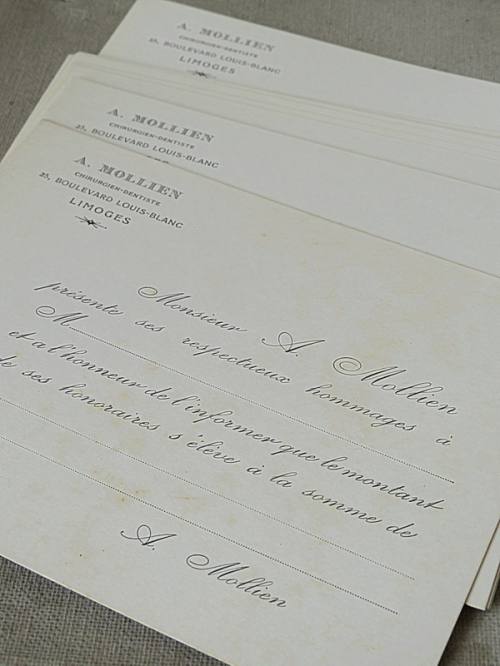 A. MOLLIEN
CHIRURGIEN-DENTISTE
25, BOULEVARD LOUIS-BLANC
LIMOGES
A. MOLLIEN
CHIRURGIEN-DENTISTE
25, BOULEVARD LOUIS-BLANC
A. MOLLIEN
CHIRURGIEN-DENTISTE
25, BOULEVARD LOUIS-BLANC
LIMOGES
Monsieur A. Mollien
présente ses respectueux hommages à
M
et a l'honneur de l'informer que le montant
de ses honoraires s'élève à la somme de
A. Mollien